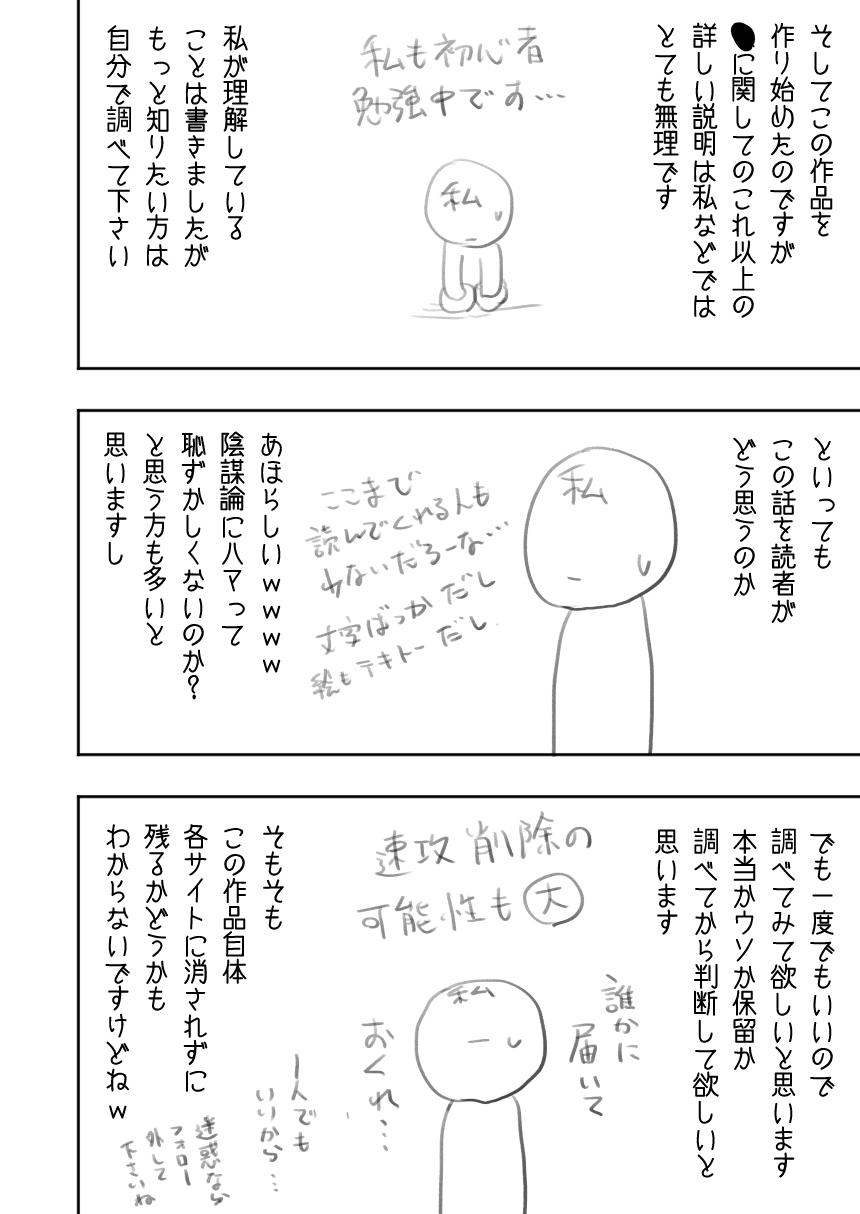 そしてこの作品を
作り始めたのですが
●に関してのこれ以上の
詳しい説明は私などでは
とても無理です
私も初心者
勉強中です…
私
私が理解している
ことは書きましたが
もっと知りたい方は
自分で調べて下さい
といっても
この話を読者が
どう思うのか
私
ここまで
読んでくれる人も
少ないだろーな…
文字ばっかだし
絵もテキトーだし
あほらしいｗｗｗｗ
陰謀論にハマって
恥ずかしくないのか？
と思う方も多いと
思いますし
でも一度でもいいので
調べてみて欲しいと思います
本当かウソか保留か
調べてから判断して欲しいと
思います
速攻削除の
可能性も大
誰かに
届いて
おくれ…
私
一人でも
いいから…
そもそも
この作品自体
各サイトに消されずに
残るかどうかも
わからないですけどねｗ
迷惑なら
フォロー
外して
下さいね